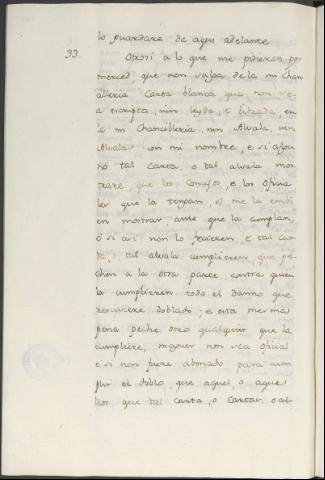 lo guardare de aqui adelante
33. Otrosi a lo que me pidieron por
merced, que non vaya de la mi Chan
cilleria Carta blanca, que non se
a escripta, nin leyda, e librada en
la mi Chancilleria, nin Alvala, nin
Alvalas en mi nombre, e si algu
no tal carta, o tal alvala mos
trare, que los Concejos, e los Oficia
les que la tengan, e me la embi
en mostrar, ante que la cumplan,
e si asi non lo ficieren, e tal car
ta, o tal alvala cumplieren, que pe
chen a la otra parte contra quien
la cumplieren todo el danno que
rescibiere doblado; e esta mesma
pena peche otro qualquier que la
cumpliere, maguer non sea oficial
e si non fuere abonado para cum
plir el doblo, que aquel, o aque
llos que tal carta, o Cartas, o al